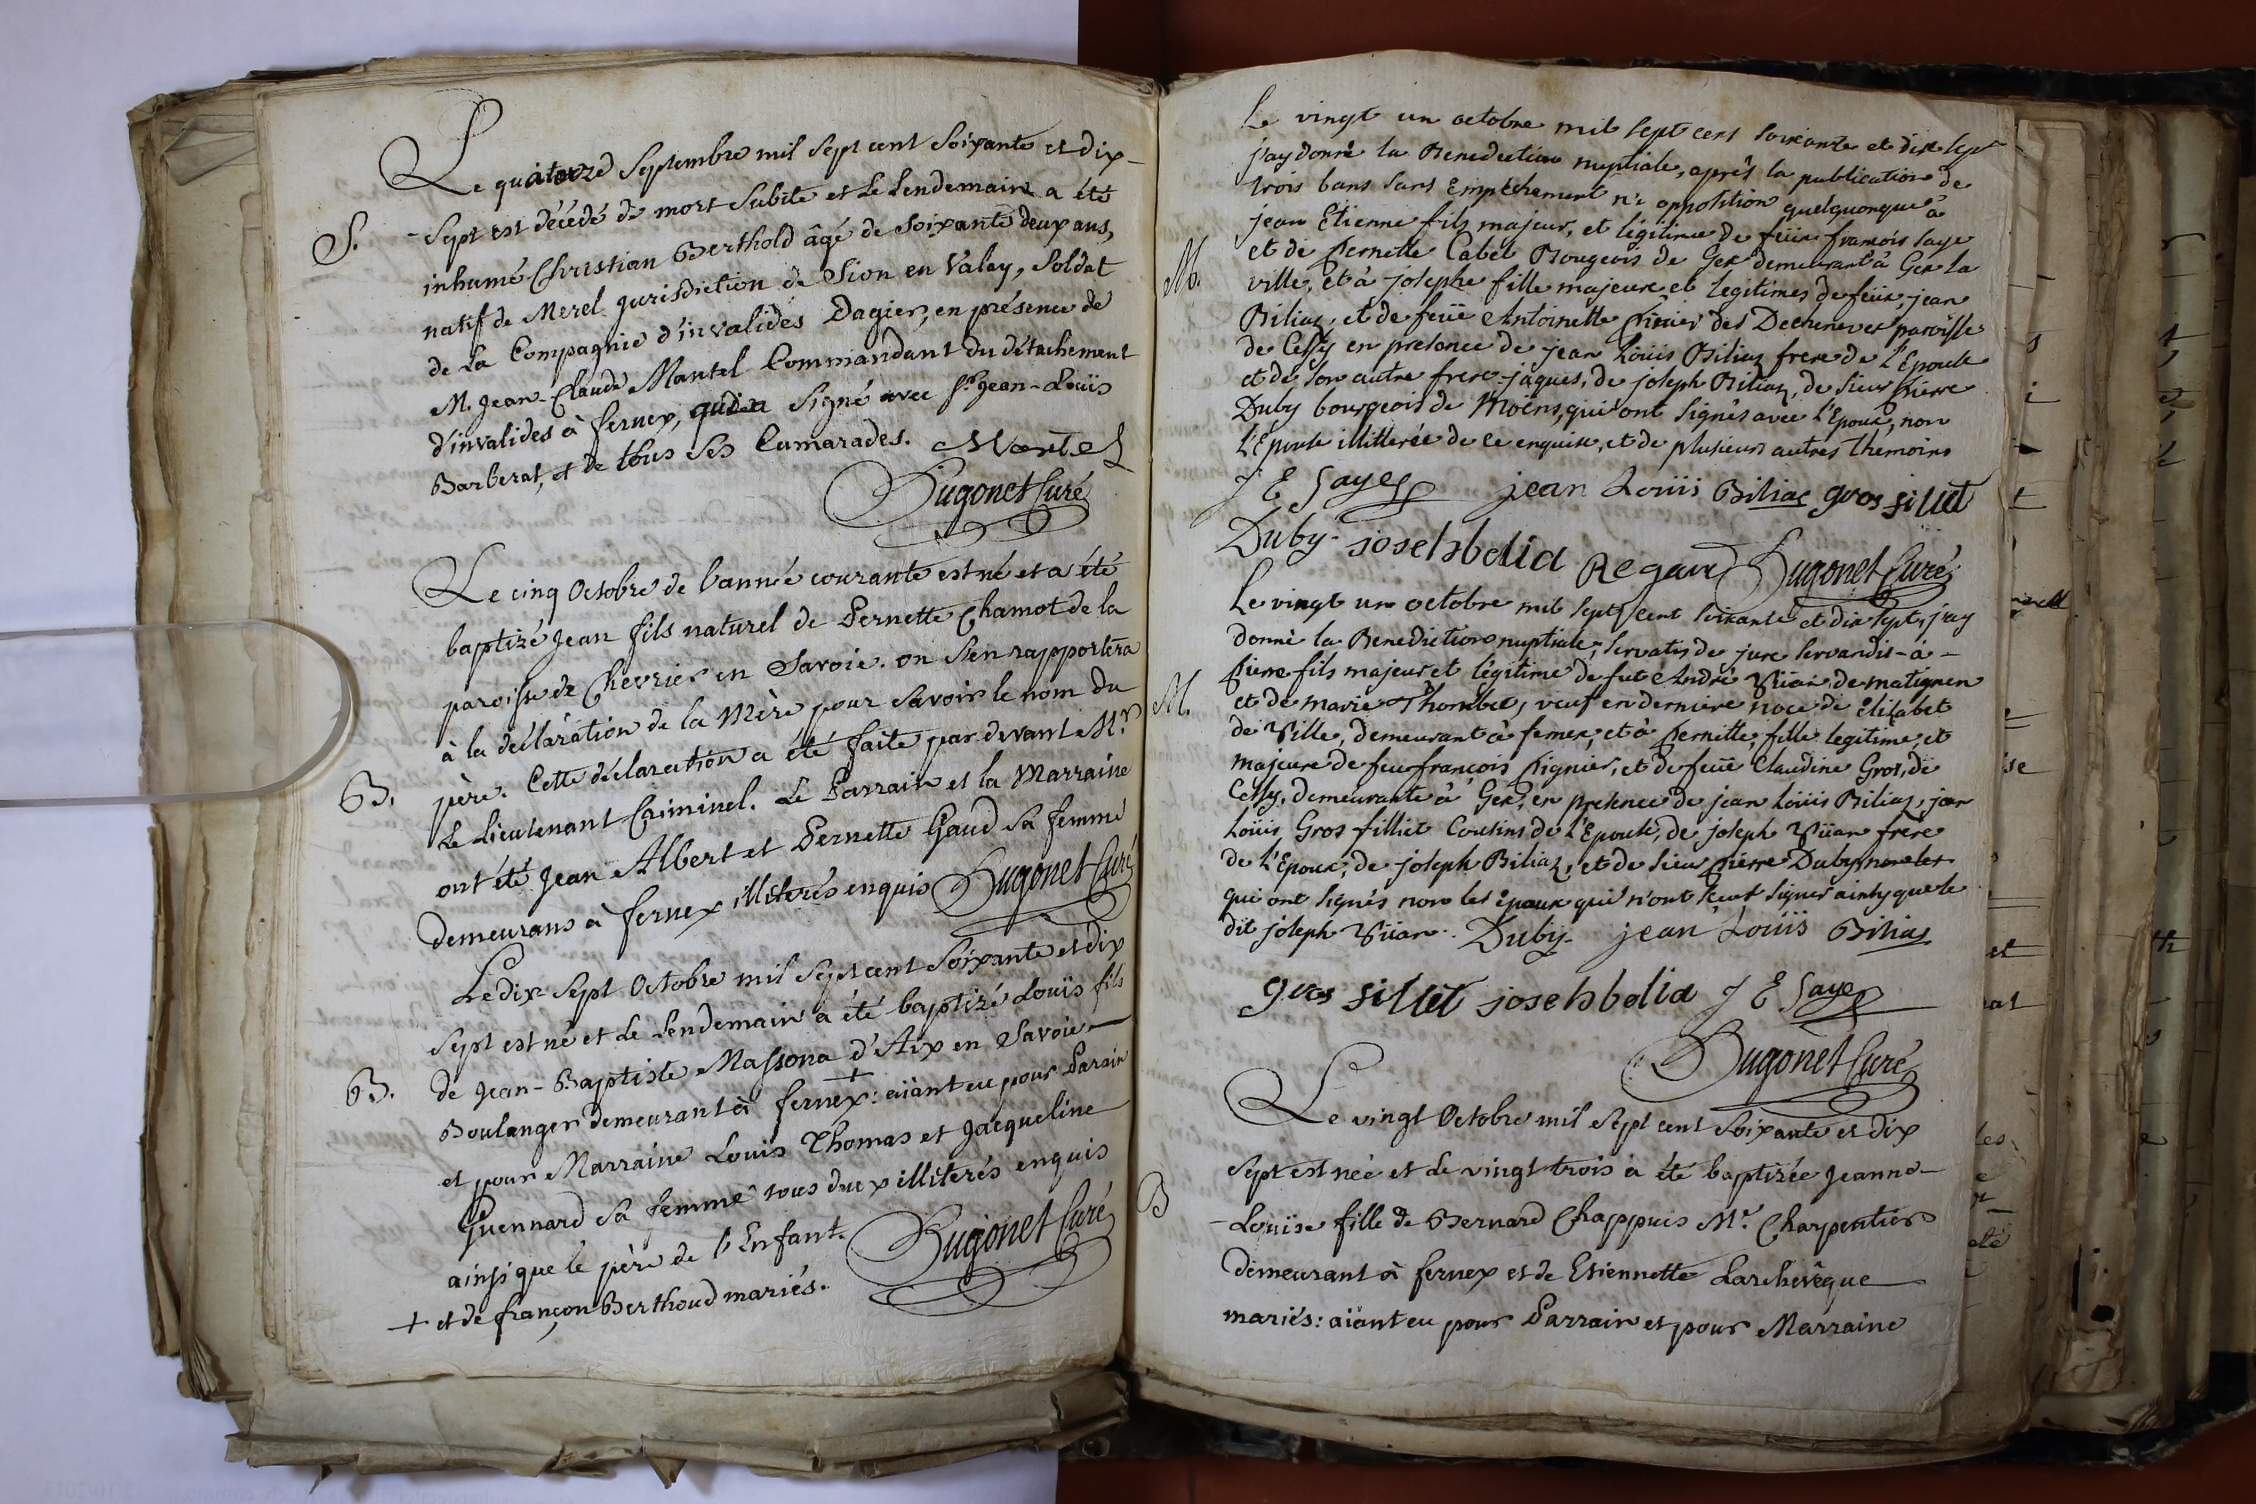 Le quatorze Septembre mil Sept cent Soixante et dix-
S.
-Sept est décédé de mort Subite et Le Lendemain a été
inhumé Christian Berthold âgé de Soixante deux ans,
natif de Merel Jurisdiction de Sion en Valay, Soldat
de La Compagnie d'invalides Dagier, en présence de
M. Jean-Claude Mantel Commandant du détachement
d'invalides à fernex, qui a Signé avec Sr. Jean-Louïs
Barberat, et de tous Ses Camarades. Mantel
Hugonet Curé
Le cinq Octobre de l'année courante est né et a été
baptizé Jean fils naturel de Pernette Chamot de la
paroisse de Chevrier en Savoie. on S'en rapportera
à la déclaration de la Mère pour Savoir le nom du
B.
père. Cette déclaration a été faite par devant Mr.
Le Lieutenant Criminel. Le Parrain et la Marraine
ont été Jean Albert et Pernette Gaud Sa femme
demeurans à fernex illiterés enquis Hugonet Curé
Le dix-Sept Octobre mil Sept cent Soixante et dix
Sept est né et Le Lendemain a été baptizé Louïs fils
B.
de Jean-Baptiste Massona d'Aix en Savoie
Boulanger demeurant à fernex + : aïant eu pour Parain
et pour Marraine Louis Thomas et Jacqueline
Guennard Sa femme tous deux illiterés enquis
ainsi que le père de l'Enfant. Hugonet Curé
+ et de françon Berthoud mariés.
Le vingt un octobre mil sept cent soixante et dix sept
j'ay donné la Benediction nuptiale, aprés la publication de
trois bans sans empéchement ni opposition quelquonque à
jean Etienne fils majeur, et légitime de feüe françois saye
M.
et de Pernette Cabet Bougeois de Gex demeurant à Gex la
ville, et à josephe fille majeure et legitimes de feüe jean
Biliaz, et de feüe Antoinette des paroisse
de Cessy en presence de jean Loüis Biliaz frere de l'Epouse
et de son autre frere jaques, de joseph Biliaz, de sieur pierre
Duby bourgeois de Moëns, qui ont signés avec l'Epoux, non
L'Epouse illitterée de ce enquise, et de plusieurs autres themoins
J E Saye jean Loüis Biliaz gros fillet
Duby josehbelia Regard Hugonet Curé
Le vingt un octobre mil sept cent soixante et dix sept, j'ay
donné la Benediction nuptiale, servatis de jure servandis - à -
pierre fils majeur et légitime de fut André Vüar de matignen
M.
et de marie Thombet, veuf en derniere noce de Elizabet
de Ville, demeurant à fernex, et à pernette fille legitime, et
majeure de feu françois pignier, et de feüe Claudine Gros, de
Cessy, demeurante à Gex, en presence de jean Loüis Biliaz, jean
Loüis Gros filliet Cousins de l'Epouse, de joseph Vüar frere
de l'Epoux, de joseph Biliaz, et de sieur pierre Duby
qui ont signés non les époux qui n'ont sçeut signer ainsy que le
dit joseph Vüar. Duby jean Loüis Biliaz
gros fillet josehbelia J E Saye
Hugonet Curé
Le vingt Octobre mil Sept cent Soixante et dix
Sept est née et Le vingt trois a été baptizée Jeanne-
B
-Louïse fille de Bernard Chappuis Me. Charpentier
demeurant à fernex et de Etiennette Larchevêque
mariés: aïant eu pour Parrain et pour Marraine